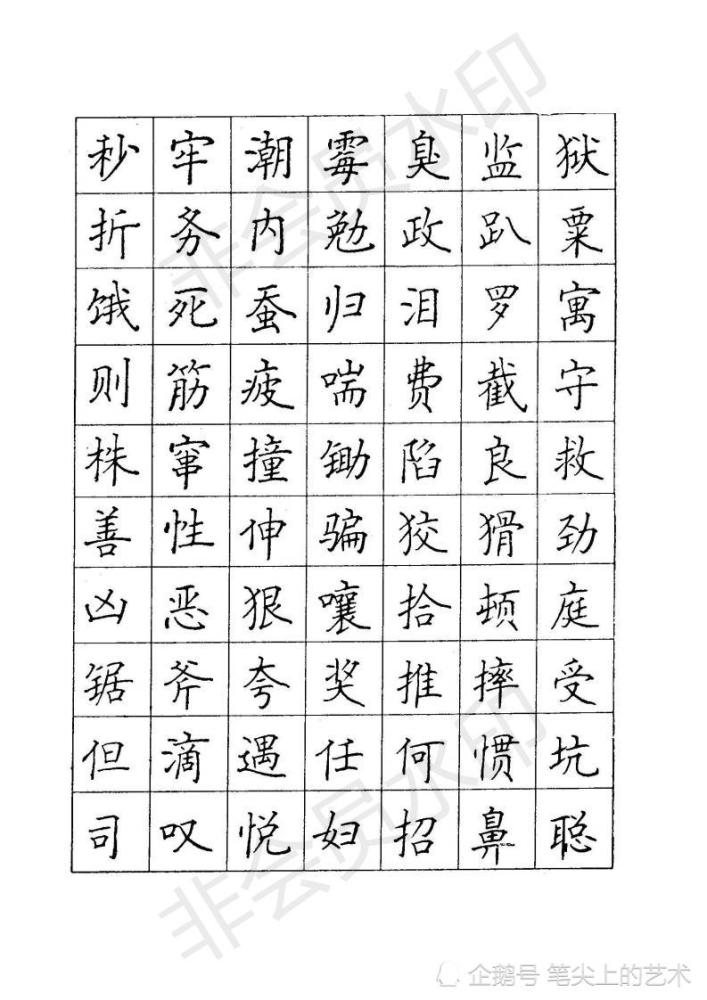 秒牢潮霉臭监狱
折务内勉政趴粟
饿死蚕归泪罗寓
则筋疲喘费截守
株窜撞锄陷良救
善性伸骗狡猾劲
凶恶狠嚷拾顿庭
锯斧夸奖推摔受
但滴遇任何惯坑
司叹悦妇招鼻聪
非会员水印
非会员水印
企鹅号 笔尖上的艺术